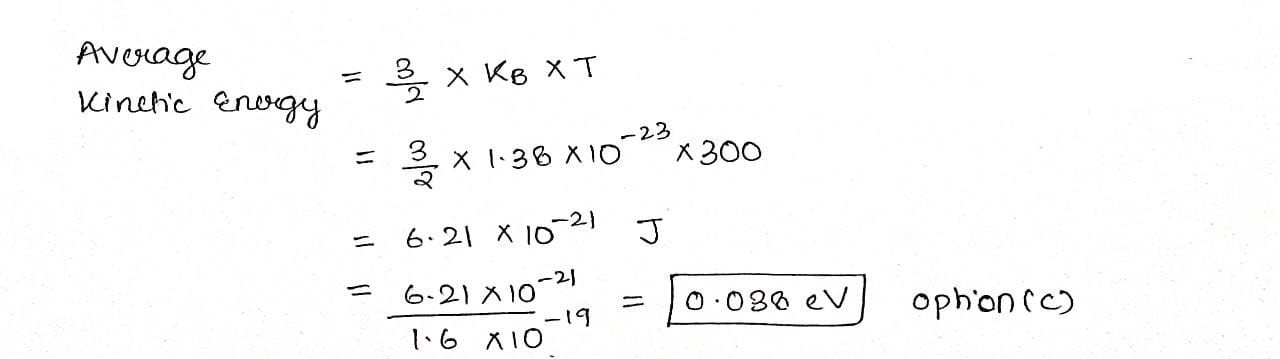 Average
Kinetic Energy = 3/2 × KB × T
= 3/2 × 1.38 × 10^-23 × 300
= 6.21 × 10^-21 J
= 6.21 × 10^-21 / 1.6 × 10^-19 = 0.038 eV option (c)